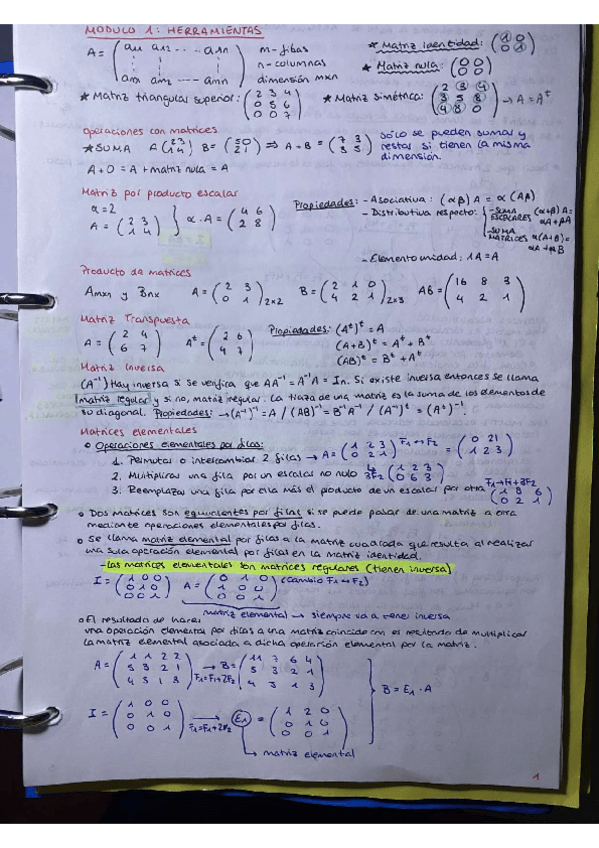 MODULO 1: HERRAMIENTAS
A = ( a11 a12 ... a1n / am1 am2 ... amn ) m-filas n-columnas dimensión mxn
* Matriz identidad: ( 1 0 / 0 1 )
* Matriz nula: ( 0 0 / 0 0 )
* Matriz triangular superior: ( 2 3 4 / 0 5 6 / 0 0 7 ) * Matriz simétrica: ( 2 3 4 / 3 5 8 / 4 8 0 ) → A = Aᵗ
Operaciones con matrices
* SUMA A ( 2 3 / 1 4 ) B = ( 5 0 / 2 1 ) ⇒ A + B = ( 7 3 / 3 5 ) sólo se pueden sumar y
restar si tienen la misma
dimensión.
A + 0 = A + matriz nula = A
Matriz por producto escalar
α = 2
A = ( 2 3 / 1 4 ) } α · A = ( 4 6 / 2 8 )
Propiedades: - Asociativa: (αβ) A = α (Aβ)
- Distributiva respecto: - SUMA ESCALARES (α+β) A = αA + βA
- SUMA MATRICES α(A+B) = αA + αB
- Elemento unidad: 1A = A
Producto de matrices
Amxn y Bnx A = ( 2 3 / 0 1 ) 2x2 B = ( 2 1 0 / 4 2 1 ) 2x3 AB = ( 16 8 3 / 4 2 1 )
Matriz Transpuesta
A = ( 2 4 / 6 7 ) Aᵗ = ( 2 6 / 4 7 ) Propiedades: (Aᵗ)ᵗ = A
(A+B)ᵗ = Aᵗ + Bᵗ
(AB)ᵗ = Bᵗ + Aᵗ
Matriz Inversa
(A⁻¹) Hay inversa si se verifica que AA⁻¹ = A⁻¹A = In. Si existe inversa entonces se llama
matriz regular y si no, matriz regular. La traza de una matriz es la suma de los elementos de
su diagonal. Propiedades: → (A⁻¹)⁻¹ = A / (AB)⁻¹ = B⁻¹A⁻¹ / (A⁻¹)ᵗ = (Aᵗ)⁻¹.
Matrices elementales
Operaciones elementales por filas:
1. Permutar o intercambiar 2 filas → A = ( 1 2 3 / 0 2 1 ) F1↔F2 = ( 0 2 1 / 1 2 3 )
2. Multiplicar una fila por un escalar no nulo 3F2 ( 1 2 3 / 0 6 3 )
3. Reemplazar una fila por ella más el producto de un escalar por otra F1→F1+3F2 ( 1 8 6 / 0 2 1 )
Dos matrices son equivalentes por filas si se puede pasar de una matriz a otra
mediante operaciones elementales por filas.
Se llama matriz elemental por filas a la matriz cuadrada que resulta al realizar
una sola operación elemental por filas en la matriz identidad.
- Las matrices elementales son matrices regulares (tienen inversa)
I = ( 1 0 0 / 0 1 0 / 0 0 1 ) A = ( 0 1 0 / 1 0 0 / 0 0 1 ) (cambio F1↔F2)
matriz elemental → siempre va a tener inversa
El resultado de hacer
una operación elemental por filas a una matriz coincide con el resultado de multiplicar
la matriz elemental asociada a dicha operación elemental por la matriz.
A = ( 1 1 2 2 / 5 3 2 1 / 4 3 1 3 ) → F1=F1+2F2 B = ( 11 7 6 4 / 5 3 2 1 / 4 3 1 3 )
B = E1 · A
I = ( 1 0 0 / 0 1 0 / 0 0 1 ) → F1=F1+2F2 E1 = ( 1 2 0 / 0 1 0 / 0 0 1 )
matriz elemental
1